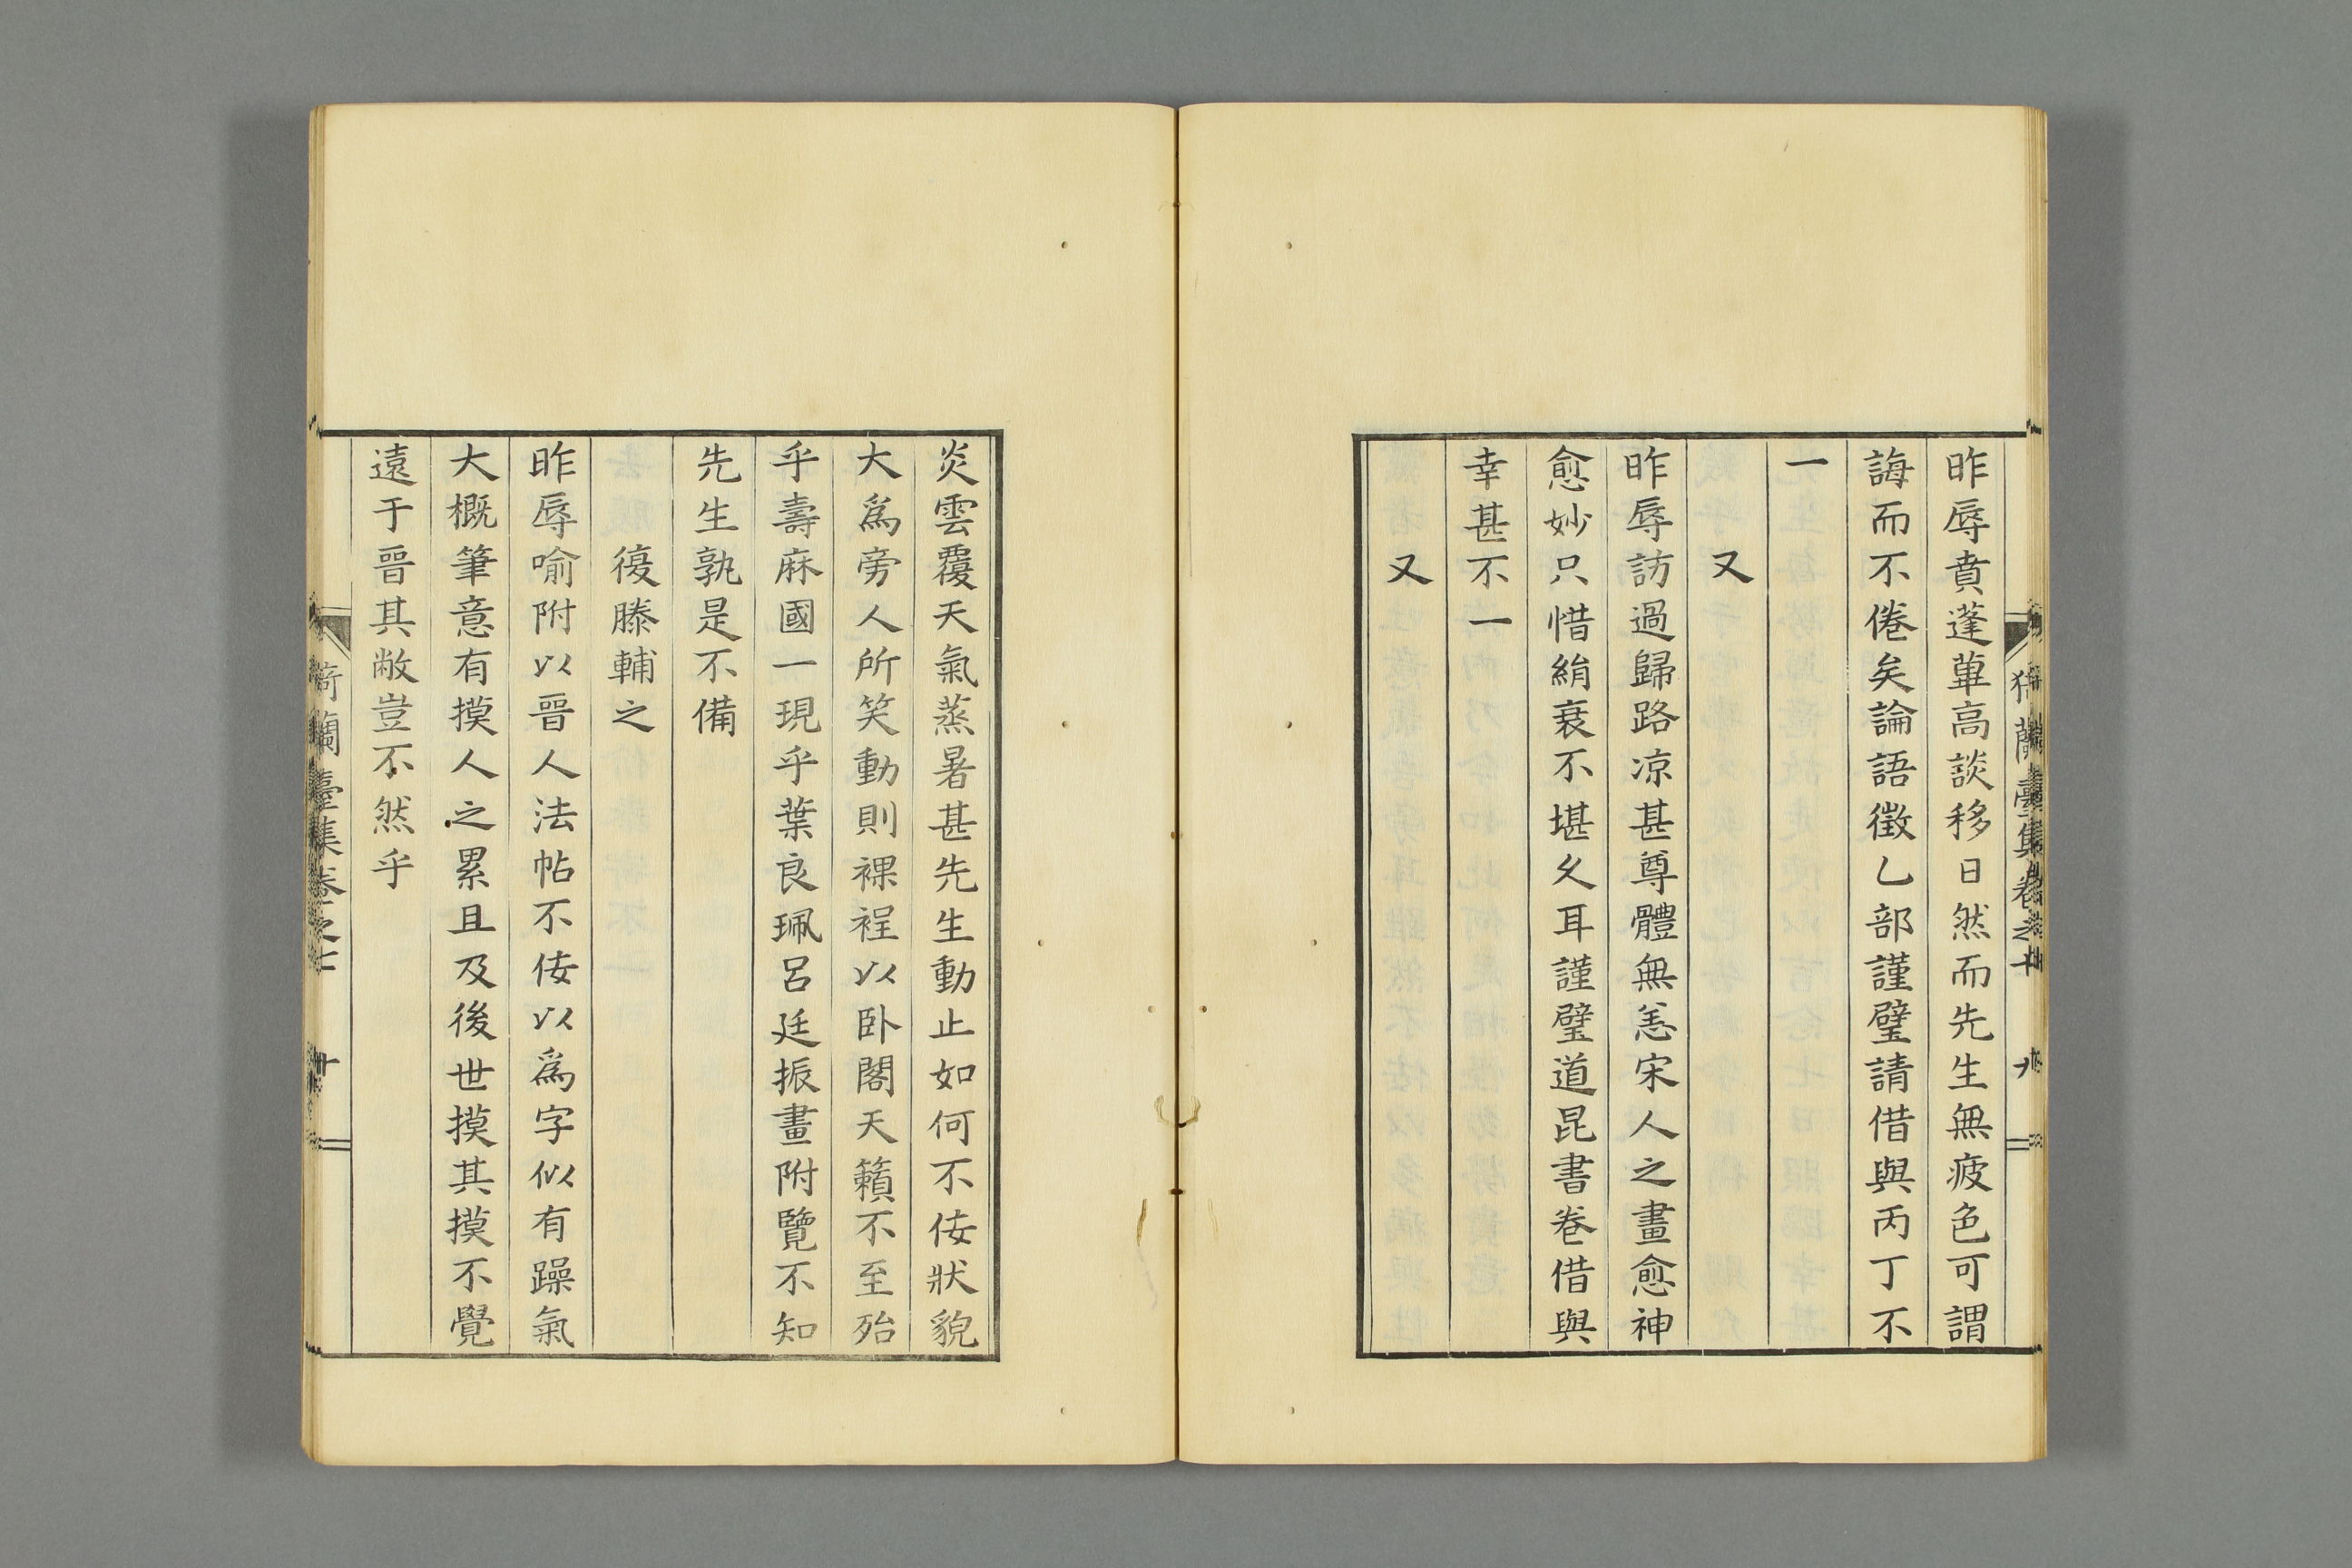 昨辱賁蓬蓽高談移日然而先生無疲色可謂
誨而不倦矣論語徵乙部謹璧請借與丙丁不
一
又
昨辱訪過歸路凉甚尊體無恙宋人之畫愈神
愈妙只惜絹衰不堪久耳謹璧道昆書卷借與
幸甚不一
又
炎雲覆天氣蒸暑甚先生動止如何不佞狀貌
大爲旁人所笑動則裸裎以卧閣天籟不至殆
乎壽麻國一現乎葉良珮呂廷振畫附覽不知
先生孰是不備
復滕輔之
昨辱喻附以晉人法帖不佞以爲字似有躁氣
大概筆意有摸人之累且及後世摸其摸不覺
遠于晉其敝豈不然乎
蘭臺集卷之七 十